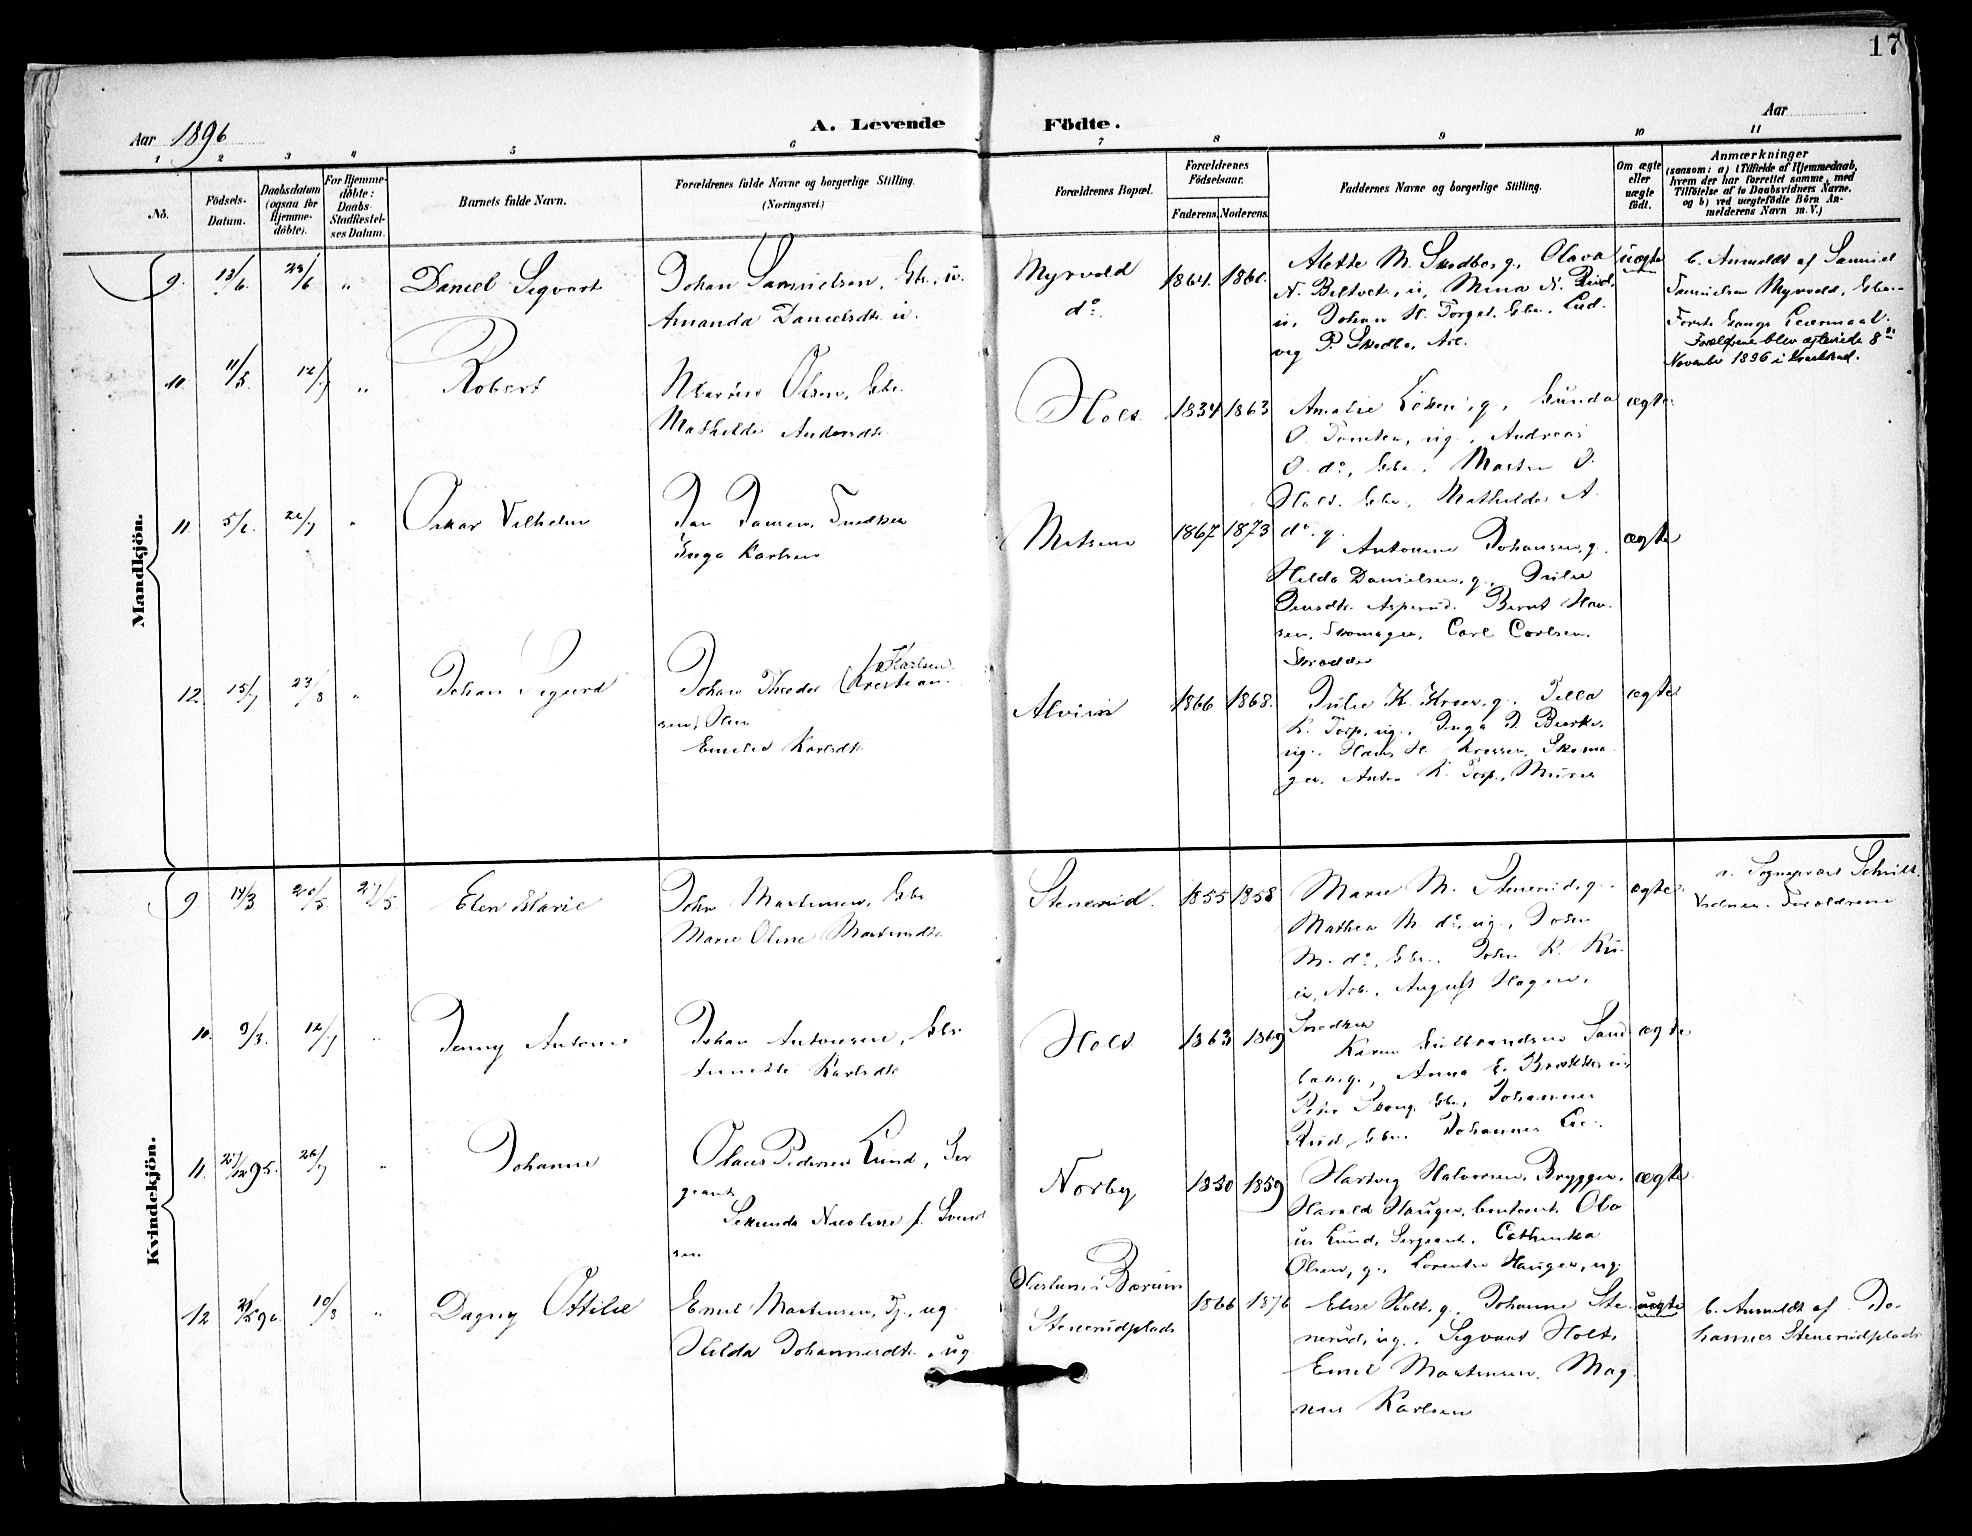 17
Aar 1896 A. Levende Födte. Aar
1 2 3 4 5 6 7 8 9 10 11
No.
Födsels-Datum.
Daabsdatum (ogsaa for Hjemme-döbte).
For Hjemme-döbte: Daabs-Stadfæstel-ses Datum.
Barnets fulde Navn.
Forældrenes fulde Navne og borgerlige Stilling.
(Næringsvei.)
Forældrenes Bopæl.
Forældrenes Födselsaar.
Faderens. Moderens.
Faddernes Navne og borgerlige Stilling.
Om ægte eller uægte födt.
Anmærkninger
(saasom: a) i Tilfælde af Hjemmedaab,
hvem der har forrettet samme, med
Tilföielse af to Daabsvidners Navne,
og b) ved uægtefödte Börn An-
melderens Navn m. V.)
Mandkjön.
9. 13/6. 28/6 " Daniel Sigvart
Johan Samuelsen, Gbr., u.
Amanda Danielsdtr. u.
Myrvold
do.
1864. 1861.
Alette M. Skodbo, g., Olava
N. Beltvet, u., Mina N. Rud,
u., Johan H. Torget, Gbr., Lud-
vig P. Skodbo, Arb.
uægte
b. Anmeldt af Samuel
Samuelsen Myrvold, Gbr.
Første Gangs Leiermaal.
Forældrene blev ægteviede 8de
November 1896 i Kraakstad.
10 11/5. 12/7 " Robert
Marius Olsen, Gbr.
Mathilde Andersdtr.
Holt 1834 1863
Amalie Löken, g., Gunda
O. Tomter, ug., Andreas
O. do., Gbr., Martin O.
Holt, Gbr., Mathilde A.
do. g.
ægte
11 5/6. 26/7 " Oskar Vilhelm
Jan Jansen, Snedker
Inga Karlsen
Matsine 1867 1873
Antonine Johansen, g.,
Hilda Danielsen, g., Julie
Jensdtr. Asperud. Bernt Han-
sen, Skomager, Carl Carlsen,
Skrædder
ægte
12 15/7 23/8 " Johan Sigurd
Johan Theodor Kristian-
Karlsen
sen,
Emilie Karlsdtr.
Alvim 1866 1868.
Julie K. Kroer, g., Tilla
K. Torp, ug., Inga J. Bjerke,
ug., Hans H. Krossen, Skoma-
ger, Anton K. Torp, Murer
ægte
Kvindekjön.
9 14/3 20/5. 27/5 Elen Marie
John Martinsen, Gbr.
Marie Oline Martinsdtr.
Stenerud. 1855 1858
Marie M. Stenerud, g.,
Mathea M. do., ug., Johan
M. do., Gbr., John K. Ru-
u, Arb., August Hagen,
Snedker
ægte.
a. Sogneprest Schult.
Vidner. Forældrene
10. 9/3. 12/7 " Jenny Antonie
Johan Antonsen, Gbr.
Annette Karlsdtr.
Holt 1863 1869
Karen Gulbrandsen Sand-
bak, g., Anna E. Brække, ug.,
Peder Skaug, Gbr., Johannes
Rud, Gbr. Johannes Lie.
ægte
11. 27/12 95. 26/7 " Johanne
Olaus Pedersen Lund, Ser-
geant
Sekunda Nicoline f. Svend-
sen
Norby 1850 1859
Hartvig Halvorsen, Brygger,
Harald Hauger, Contorist, Ola-
us Lund, Sergeant, Cathinka
Olsen, g., Lorentse Hauger, ug.
ægte
12 29/5 96. 10/8 " Dagny Ottilie
Emil Martinsen, Tj., ug.
Hilda Johannesdtr., ug.
i Bærum
Stenerudplads
1866 1876
Elise Holt, g., Johanne Ste-
nerud, ug., Sigvart Holt,
Emil Martinsen, Mag-
nus Karlsen
uægte
b. Anmeldt af Jo-
hannes Stenerudplads